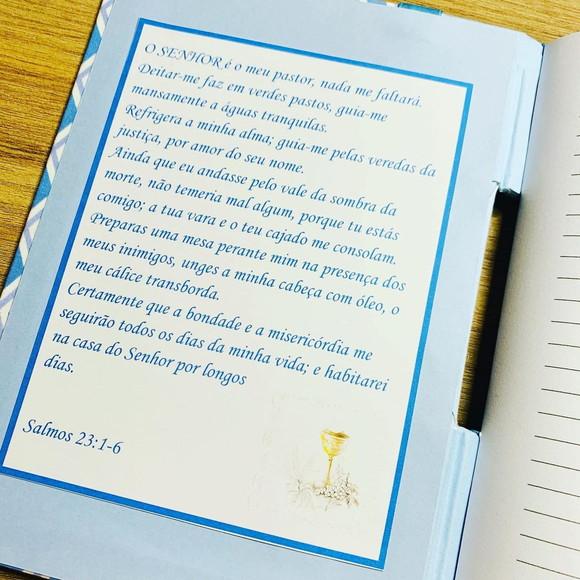 O SENHOR é o meu pastor, nada me faltará.
Deitar-me faz em verdes pastos, guia-me
mansamente a águas tranquilas.
Refrigera a minha alma; guia-me pelas veredas da
justiça, por amor do seu nome.
Ainda que eu andasse pelo vale da sombra da
morte, não temeria mal algum, porque tu estás
comigo; a tua vara e o teu cajado me consolam.
Preparas uma mesa perante mim na presença dos
meus inimigos, unges a minha cabeça com óleo, o
meu cálice transborda.
Certamente que a bondade e a misericórdia me
seguirão todos os dias da minha vida; e habitarei
na casa do Senhor por longos
dias.
Salmos 23:1-6